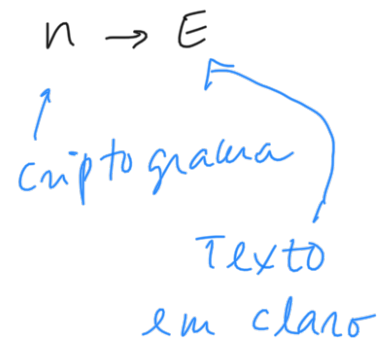 n → E
criptograma
Texto
em claro